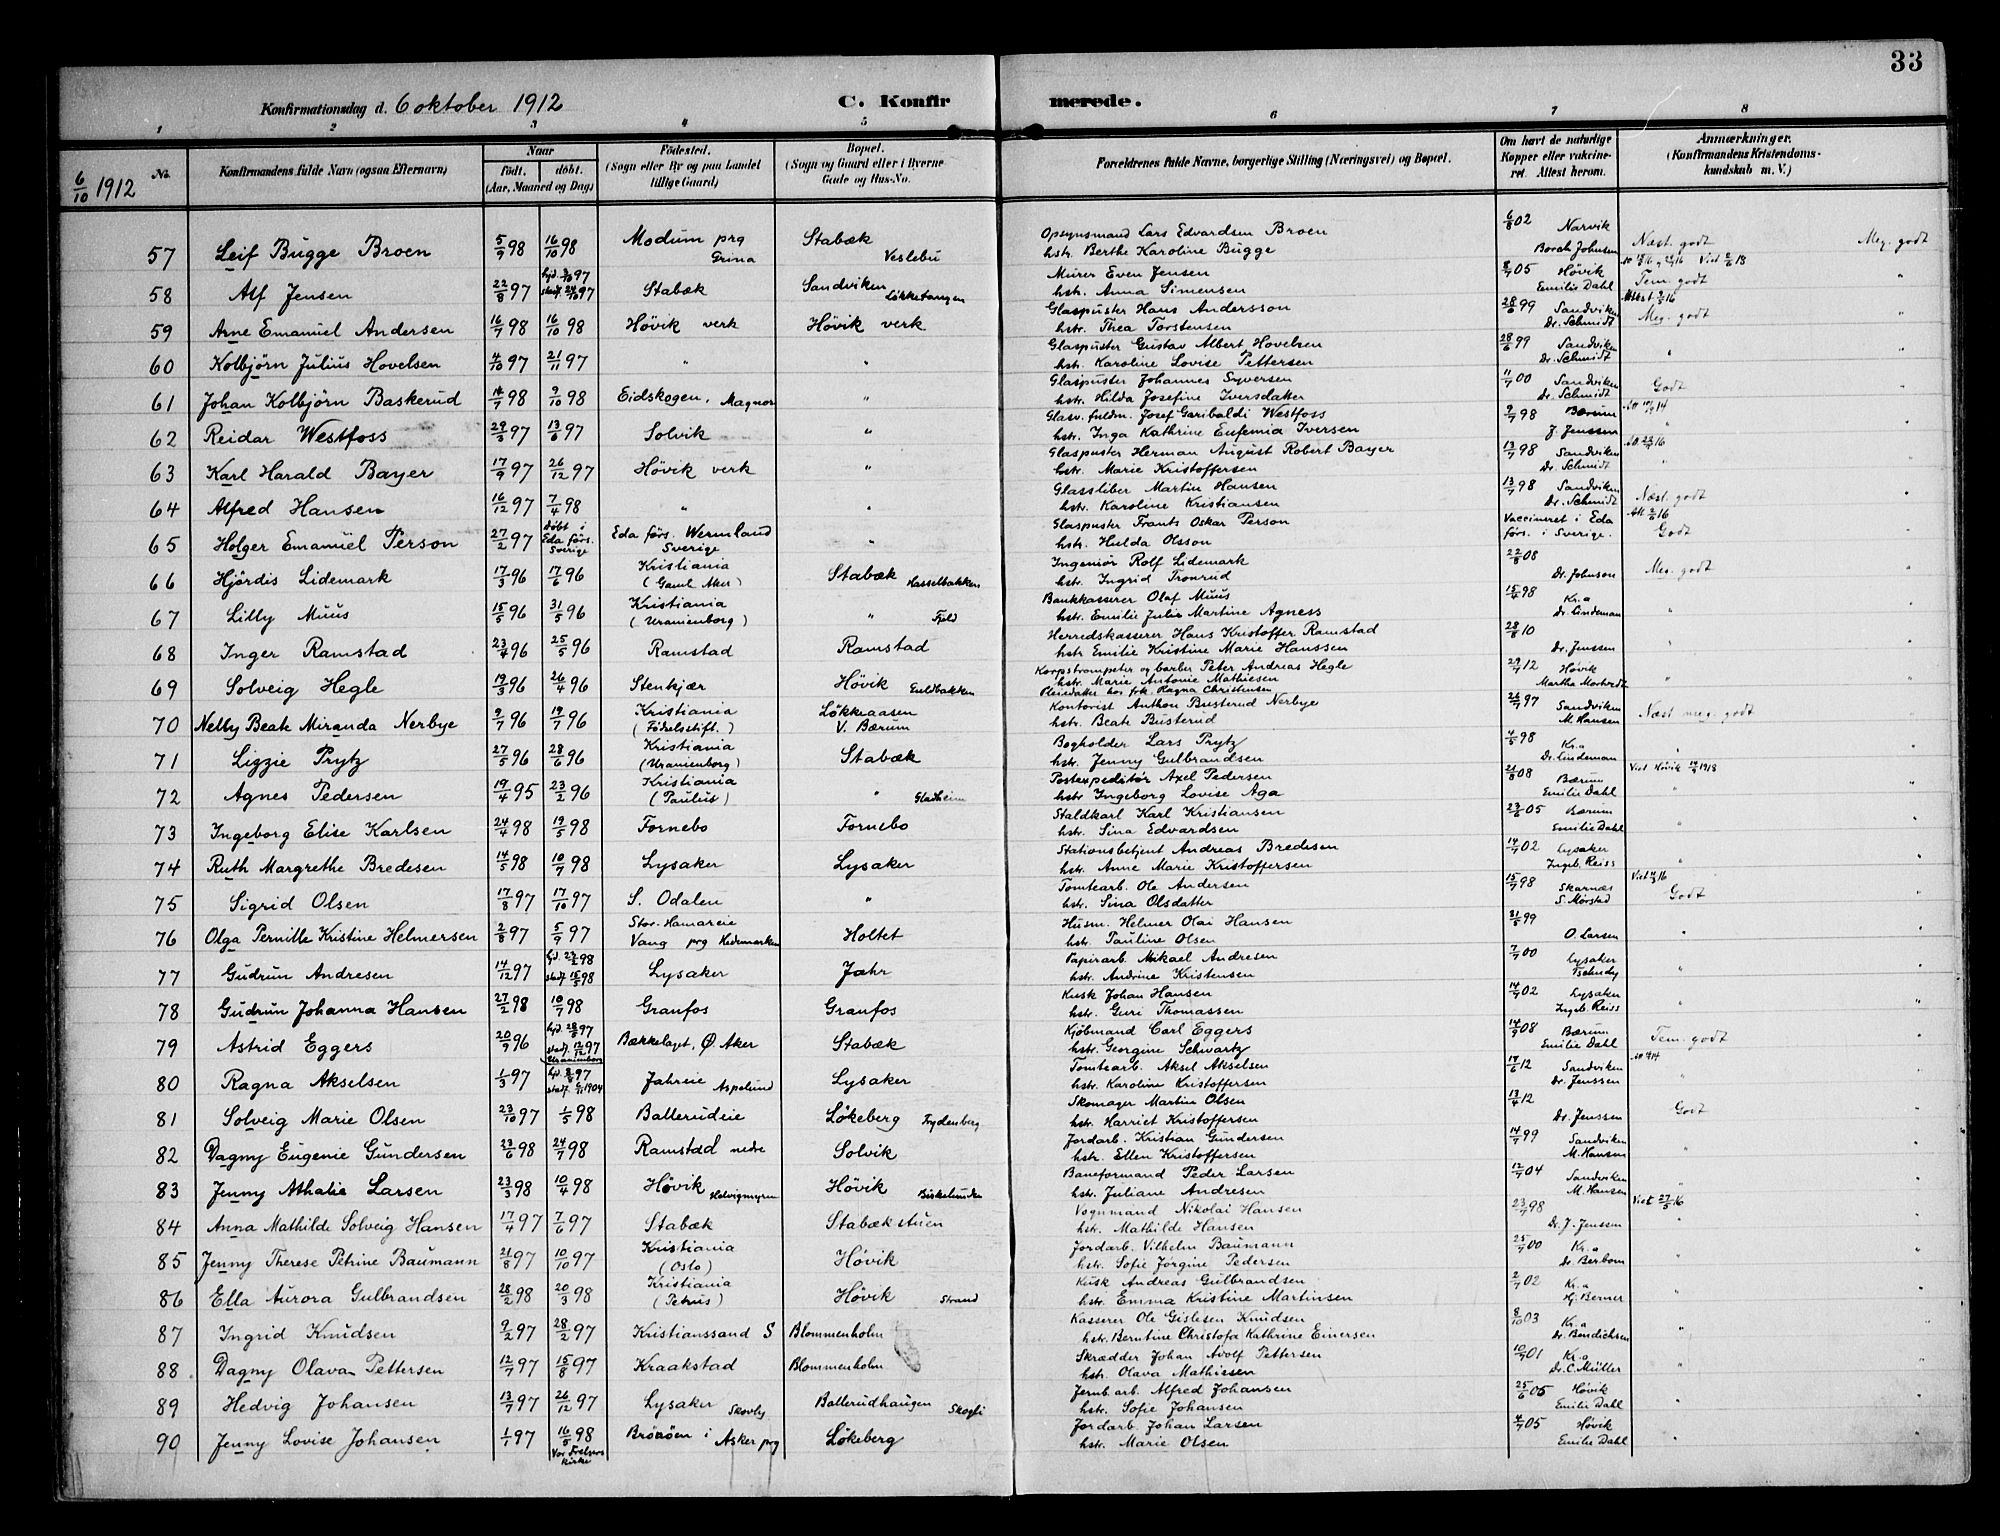 33
Konfirmationsdag d. 6 oktober 1912 C. Konfirmerede.
1 2 3 4 5 6 7 8
6/10 1912 No. Konfirmandens fulde Navn (ogsaa Efternavn) Naar født. døbt. (Aar, Maaned og Dag) Fødested. (Sogn eller By og paa Landet tillige Gaard) Bopæl. (Sogn og Gaard eller i Byerne Gade og Hus-No. Forældrenes fulde Navne, borgerlige Stilling (Næringsvei) og Bopæl. Om havt de naturlige Kopper eller vakcineret. Attest herom. Anmærkninger. (Konfirmandens Kristendomskundskab m. V.)
57 Leif Bugge Broen 5/9 98 16/10 98 Modum prg Grina Stabæk Veslebu Opsynsmand Lars Edvardsen Broen hstr. Berthe Karoline Bugge 6/8 02 Narvik Borch Johnsen Næst. godt Meg. godt
58 Alf Jensen 22/8 97 Stabæk Sandviken Løkketangen Murer Even Jensen hstr. Anna Simensen 8/7 05 Høvik Emilie Dahl Tem. godt "
59 Arne Emanuel Andersen 16/7 98 16/10 98 Høvik verk Høvik verk Glaspuster Hans Andersson hstr. Thea Torstensen 28/6 99 Sandviken Dr. Schmidt Meg. godt "
60 Kolbjörn Julius Hovelsen 4/10 97 21/11 97 " " Glaspuster Gustav Albert Hovelsen hstr. Karoline Lovise Pettersen 28/6 99 Sandviken Dr. Schmidt "
61 Johan Kolbjörn Baskerud 14/7 98 9/10 98 Eidskogen, Magnor " Glaspuster Johannes Syversen hstr. Hilda Josefine Iversdatter 11/7 00 Sandviken Dr. Schmidt Godt "
62 Reidar Westfoss 29/3 97 13/6 97 Solvik " Glasv. fuldm. Josef Garibaldi Westfoss hstr. Inga Kathrine Eufemia Iversen 9/7 98 Bærum J. Jenssen "
63 Karl Harald Bayer 17/9 97 26/12 97 Høvik verk " Glaspuster Herman August Robert Bayer hstr. Marie Kristoffersen 13/7 98 Sandviken Dr. Schmidt "
64 Alfred Hansen 16/12 97 7/4 98 " " Glassliber Martin Hansen hstr. Karoline Kristiansen 13/7 98 Sandviken Dr. Schmidt Næst. godt "
65 Holger Emanuel Person 27/2 97 Døbt i Eda førs. Sverige Eda førs. Wermland Sverige " Glaspuster Frants Oskar Person hstr. Hulda Olsson Vaccineret i Eda førs. i Sverige. Godt
66 Hjördis Lidemark 17/3 96 17/6 96 Kristiania (Gaml. Aker) Stabæk Hasselbakken Ingeniør Rolf Lidemark hstr. Ingrid Tronrud 22/8 08 Dr. Johnson Meg. godt "
67 Lilly Muus 15/5 96 31/5 96 Kristiania (Uranienborg) " Fjeld Bankkasserer Olaf Muus hstr. Emilie Julie Martine Agness 15/4 98 Kr.a Dr. Lindeman " "
68 Inger Ramstad 23/4 96 25/5 96 Ramstad Ramstad Herredskasserer Hans Kristoffer Ramstad hstr. Emilie Kristine Marie Hanssen 28/8 10 Dr. Jenssen " "
69 Solveig Hegle 19/3 96 26/4 96 Stenkjær Høvik Guldbakken Korpstrompeter og barber Peter Andreas Hegle hstr. Marie Antonie Mathiesen Pleiedatter hos frk. Ragna Christensen 29/7 12 Høvik Martha " "
70 Nelly Beate Miranda Nerbye 9/7 96 19/7 96 Kristiania (Födselsstift.) Løkkeaasen V. Bærum Kontorist Anthon Busterud Nerbye hstr. Beate Busterud 26/7 97 Sandviken M. Hansen Næst meg. godt
71 Lizzie Prytz 27/5 96 28/6 96 Kristiania (Uranienborg) Stabæk Bogholder Lars Prytz hstr. Jenny Gulbrandsen 4/5 98 Kr.a Dr. Lindeman " "
72 Agnes Pedersen 19/4 95 23/2 96 Kristiania (Paulus) " Gladheim Postexpeditør Axel Pedersen hstr. Ingeborg Lovise Aga 21/8 08 Bærum Emilie Dahl " "
73 Ingeborg Elise Karlsen 24/4 98 19/5 98 Fornebo Fornebo Staldkarl Karl Kristiansen hstr. Sina Edvardsen 23/6 05 Bærum Emilie Dahl "
74 Ruth Margrethe Bredesen 14/5 98 10/7 98 Lysaker Lysaker Stationsbetjent Andreas Bredesen hstr. Anne Marie Kristoffersen 14/7 02 Lysaker Ingeb. Reiss " "
75 Sigrid Olsen 17/8 97 17/10 97 S. Odalen " Tomtearb. Ole Andersen hstr. Sina Olsdatter 15/7 98 Skarnæs S. Mørstad Godt "
76 Olga Pernille Kristine Helmersen 2/8 97 5/9 97 Stor-Hamareie Vang prg Hedemarken Holtet Husm. Helmer Olai Hansen hstr. Pauline Olsen 31/8 99 O. Larsen " "
77 Gudrun Andresen 14/12 97 Lysaker Jahr Papirarb. Mikael Andresen hstr. Andrine Kristensen 7/7 00 Lysaker " "
78 Gudrun Johanna Hansen 27/2 98 10/7 98 Granfos Granfos Kusk Johan Hansen hstr. Guri Thomassen 14/7 02 Lysaker Ingeb. Reiss " "
79 Astrid Eggers 20/9 96 Uranienborg Bækkelaget, Ø. Aker Stabæk Kjöbmand Carl Eggers hstr. Georgine Schwartz 14/9 08 Bærum Emilie Dahl Tem. godt "
80 Ragna Akselsen 1/3 97 Jahreie Aspelund Lysaker Tomtearb. Aksel Akselsen hstr. Karoline Kristoffersen 17/6 12 Sandviken Dr. Jenssen
81 Solveig Marie Olsen 23/10 97 1/5 98 Ballerudeie Løkeberg Frydenberg Skomager Martin Olsen hstr. Harriet Kristoffersen 13/4 12 Dr. Jenssen Godt "
82 Dagny Eugenie Gundersen 23/6 98 24/7 98 Ramstad nedre Solvik Jordarb. Kristian Gundersen hstr. Ellen Kristoffersen 14/7 99 Sandviken M. Hansen " "
83 Jenny Athalie Larsen 23/3 98 10/4 98 Høvik Helvigmyren Høvik Birkelunden Baneformand Peder Larsen hstr. Juliane Andresen 12/7 04 Sandviken M. Hansen " "
84 Anna Mathilde Solveig Hansen 17/4 97 7/6 97 Stabæk Stabækstuen Vognmand Nikolai Hansen hstr. Mathilde Hansen 23/7 98 Dr. J. Jenssen Viet 27/5 16 " "
85 Jenny Therese Petrine Baumann 21/8 97 10/10 97 Kristiania (Oslo) Høvik Jordarb. Vilhelm Baumann hstr. Sofie Jørgine Pedersen 25/7 00 Kr.a Dr. Berbom " "
86 Ella Aurora Gulbrandsen 28/2 98 20/3 98 Kristiania (Petrus) Høvik Strand Kusk Andreas Gulbrandsen hstr. Emma Kristine Martinsen 2/7 02 Kr.a Hj. Berner " "
87 Ingrid Knudsen 9/2 97 28/2 97 Kristianssand S Blommenholm Kasserer Ole Gislesen Knudsen hstr. Berntine Christofa Kathrine Einersen 8/10 03 Kr.a Dr. Bendichsen " "
88 Dagny Olava Pettersen 12/7 97 15/8 97 Kraakstad Blommenholm Skrædder Johan Adolf Pettersen hstr. Olava Mathiesen 10/7 01 Kr.a Dr. C. Müller " "
89 Hedvig Johansen 13/7 97 26/12 97 Lysaker Skovly Ballerudhaugen Skogli Jernb. arb. Alfred Johansen hstr. Sofie Johansen 25/6 05 Høvik Emilie Dahl " "
90 Jenny Lovise Johansen 1/1 97 16/5 98 Vor Frelsers kirke i Asker prg Løkeberg Jordarb. Johan Larsen hstr. Marie Olsen 4/7 05 Høvik Emilie Dahl " "